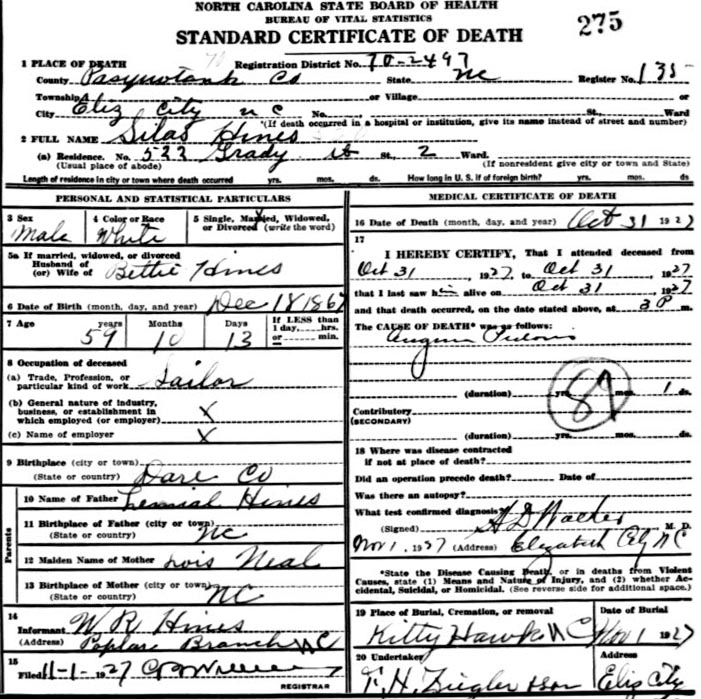 NORTH CAROLINA STATE BOARD OF HEALTH
BUREAU OF VITAL STATISTICS
STANDARD CERTIFICATE OF DEATH
275
1 PLACE OF DEATH Registration District No. 70-2497
County Pasquotank Co State NC Register No. 135
Township or Village or
City Eliz City N C No. St., Ward
*(If death occurred in a hospital or institution, give its name instead of street and number)
2 FULL NAME Silas Hines
(a) Residence. No. 533 Grady St St., 2 Ward.
(Usual place of abode) (If nonresident give city or town and State)
Length of residence in city or town where death occurred yrs. mos. ds. How long in U. S. if of foreign birth? yrs. mos. ds.
PERSONAL AND STATISTICAL PARTICULARS
3 Sex
Male
4 Color or Race
White
5 Single, Married, Widowed, or Divorced (write the word)
5a If married, widowed, or divorced
Husband of
(or) Wife of Bettie Hines
6 Date of Birth (month, day, and year) Dec 18 1867
7 Age years Months Days If LESS than
1 day, hrs.
or min.
59 10 13
8 Occupation of deceased
(a) Trade, Profession, or
particular kind of work Sailor
(b) General nature of industry,
business, or establishment in
which employed (or employer) X
(c) Name of employer X
9 Birthplace (city or town)
(State or country) Dare Co
Parents
10 Name of Father Hines
11 Birthplace of Father (city or town)
(State or country) NC
12 Maiden Name of Mother Lois Neal
13 Birthplace of Mother (city or town)
(State or country) NC
14
Informant W R Hines
(Address) Poplar Branch NC
15
Filed 11-1-1927
REGISTRAR
MEDICAL CERTIFICATE OF DEATH
16 Date of Death (month, day, and year) Oct 31 1927
17
I HEREBY CERTIFY, That I attended deceased from
Oct 31, 1927, to Oct 31, 1927
that I last saw him alive on Oct 31, 1927
and that death occurred, on the date stated above, at 3 P m.
The CAUSE OF DEATH* was as follows:
Angina
(duration) yrs. mos. 1 ds.
89
Contributory
(SECONDARY)
(duration) yrs. mos. ds.
18 Where was disease contracted
if not at place of death?
Did an operation precede death? Date of
Was there an autopsy?
What test confirmed diagnosis?
(Signed) M. D.
Nov 1, 1927 (Address) Elizabeth City N C
*State the Disease Causing Death, or in deaths from Violent
Causes, state (1) Means and Nature of Injury, and (2) whether Ac-
cidental, Suicidal, or Homicidal. (See reverse side for additional space.)
19 Place of Burial, Cremation, or removal
Kitty Hawk N C
Date of Burial
Nov 1 1927
20 Undertaker
T. H. Ziegler & Son
Address
Eliz City